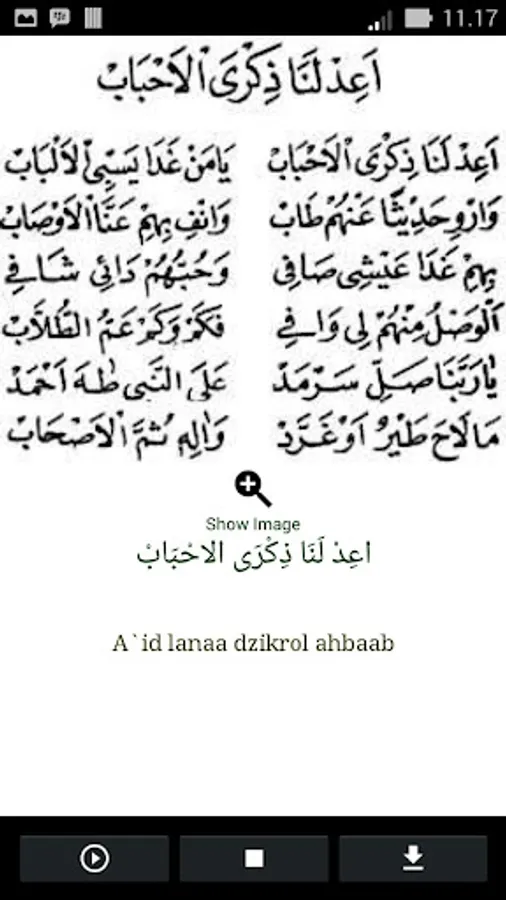 11.17
اَعِدْ لَنَا ذِكْرَى الْاَحْبَابْ
اَعِدْ لَنَا ذِكْرَى الْاَحْبَابْ يَامَنْ غَدَا يَسْبِى الْاَلْبَابْ
وَارْوِحَدِيْثًا عَنْهُمْ طَابْ وَانْفِ بِهِمْ عَنَّا الْاَوْصَابْ
بِهِمْ غَدَا عَيْشِى صَافِى وَحُبُّهُمْ دَائِى شَافِى
اَلْوَصْلُ مِنْهُمْ لِى وَافِى فَكَمْ وَكَمْ عَمُّ الطُّلَّابْ
يَارَبَّنَا صَلِّ سَرْمَدْ عَلَى النَّبِى طٰهَ اَحْمَدْ
مَالَاحَ طَيْرٌ اَوْغَرَّدْ وَاٰلِهِ ثُمَّ الْاَصْحَابْ
Show Image
اعِدْ لَنَا ذِكْرَى الْاحْبَابْ
A`id lanaa dzikrol ahbaab